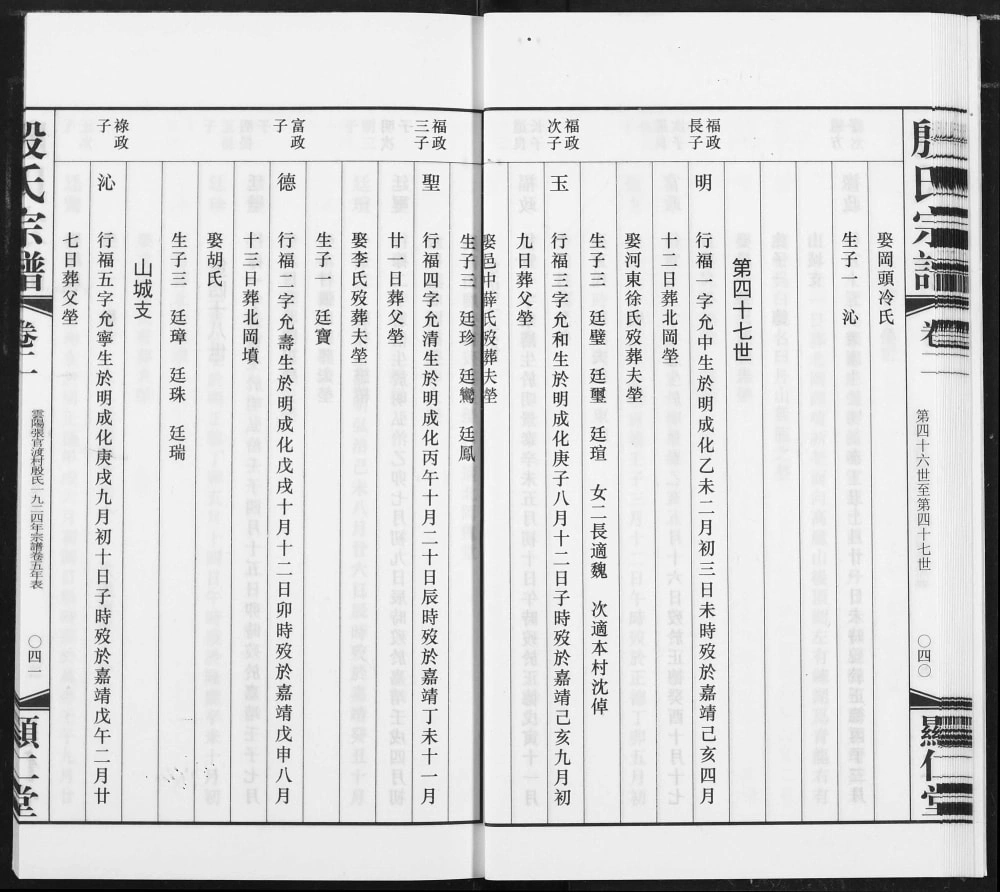 殷氏宗譜
卷二
第四十六世至第四十七世
〇四〇
顯仁堂
娶岡頭冷氏
生子一 沁
第四十七世
福政長子
明
行福一字允中生於明成化乙未二月初三日未時歿於嘉靖己亥四月
十二日葬北岡塋
娶河東徐氏歿葬夫塋
生子三 廷璧 廷璽 廷瑄 女二長適魏 次適本村沈倬
福政次子
玉
行福三字允和生於明成化庚子八月十二日子時歿於嘉靖己亥九月初
九日葬父塋
娶邑中薛氏歿葬夫塋
生子三 廷珍 廷鸞 廷鳳
福政三子
聖
行福四字允清生於明成化丙午十月二十日辰時歿於嘉靖丁未十一月
廿一日葬父塋
娶李氏歿葬夫塋
生子一 廷寶
富政子
德
行福二字允壽生於明成化戊戌十月十二日卯時歿於嘉靖戊申八月
十三日葬北岡墳
娶胡氏
生子三 廷璋 廷珠 廷瑞
山城支
祿政子
沁
行福五字允寧生於明成化庚戌九月初十日子時歿於嘉靖戊午二月廿
七日葬父塋
殷氏宗譜
卷二
雲陽張官渡村殷氏一九二四年宗譜卷五年表
〇四一
顯仁堂